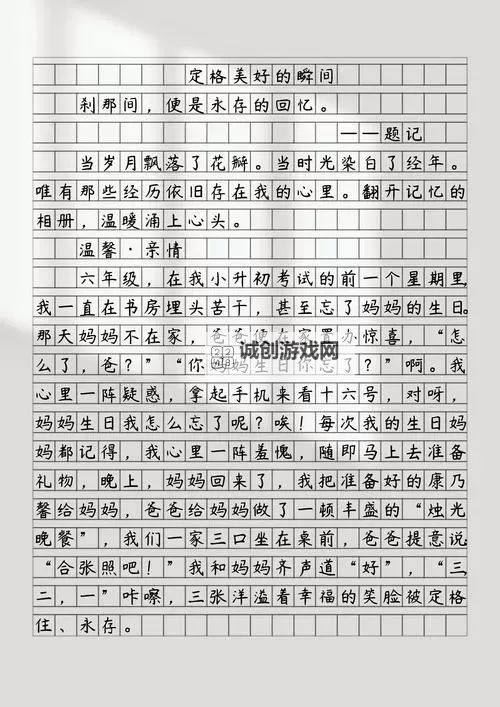 定格美好的瞬间
刹那间，便是永存的回忆。
——题记
当岁月飘落了花瓣。当时光染白了经年。
唯有那些经历依旧存在我的心里。翻开记忆的
相册，温暖涌上心头。
温馨·亲情
六年级，在我小升初考试的前一个星期里
我一直在书房埋头苦干，甚至忘了妈妈的生日
那天妈妈不在家，爸爸便在家置办惊喜，“怎
么了，爸？”“你妈妈生日你忘了？”啊。我
诚创游戏网
心里一阵疑惑，拿起手机来看十六号，对呀，
妈妈生日我怎么忘了呢？唉！每次我的生日妈
妈都记得，我心里一阵羞愧，随即马上去准备
礼物，晚上，妈妈回来了，我把准备好的康乃
馨给妈妈，爸爸给妈妈做了一顿丰盛的“烛光
晚餐”，我们一家三口坐在桌前，爸爸提意说
“合张照吧！”我和妈妈齐声道“好”，“三
二，一”咔嚓，三张洋溢着幸福的笑脸被定格
住、永存。